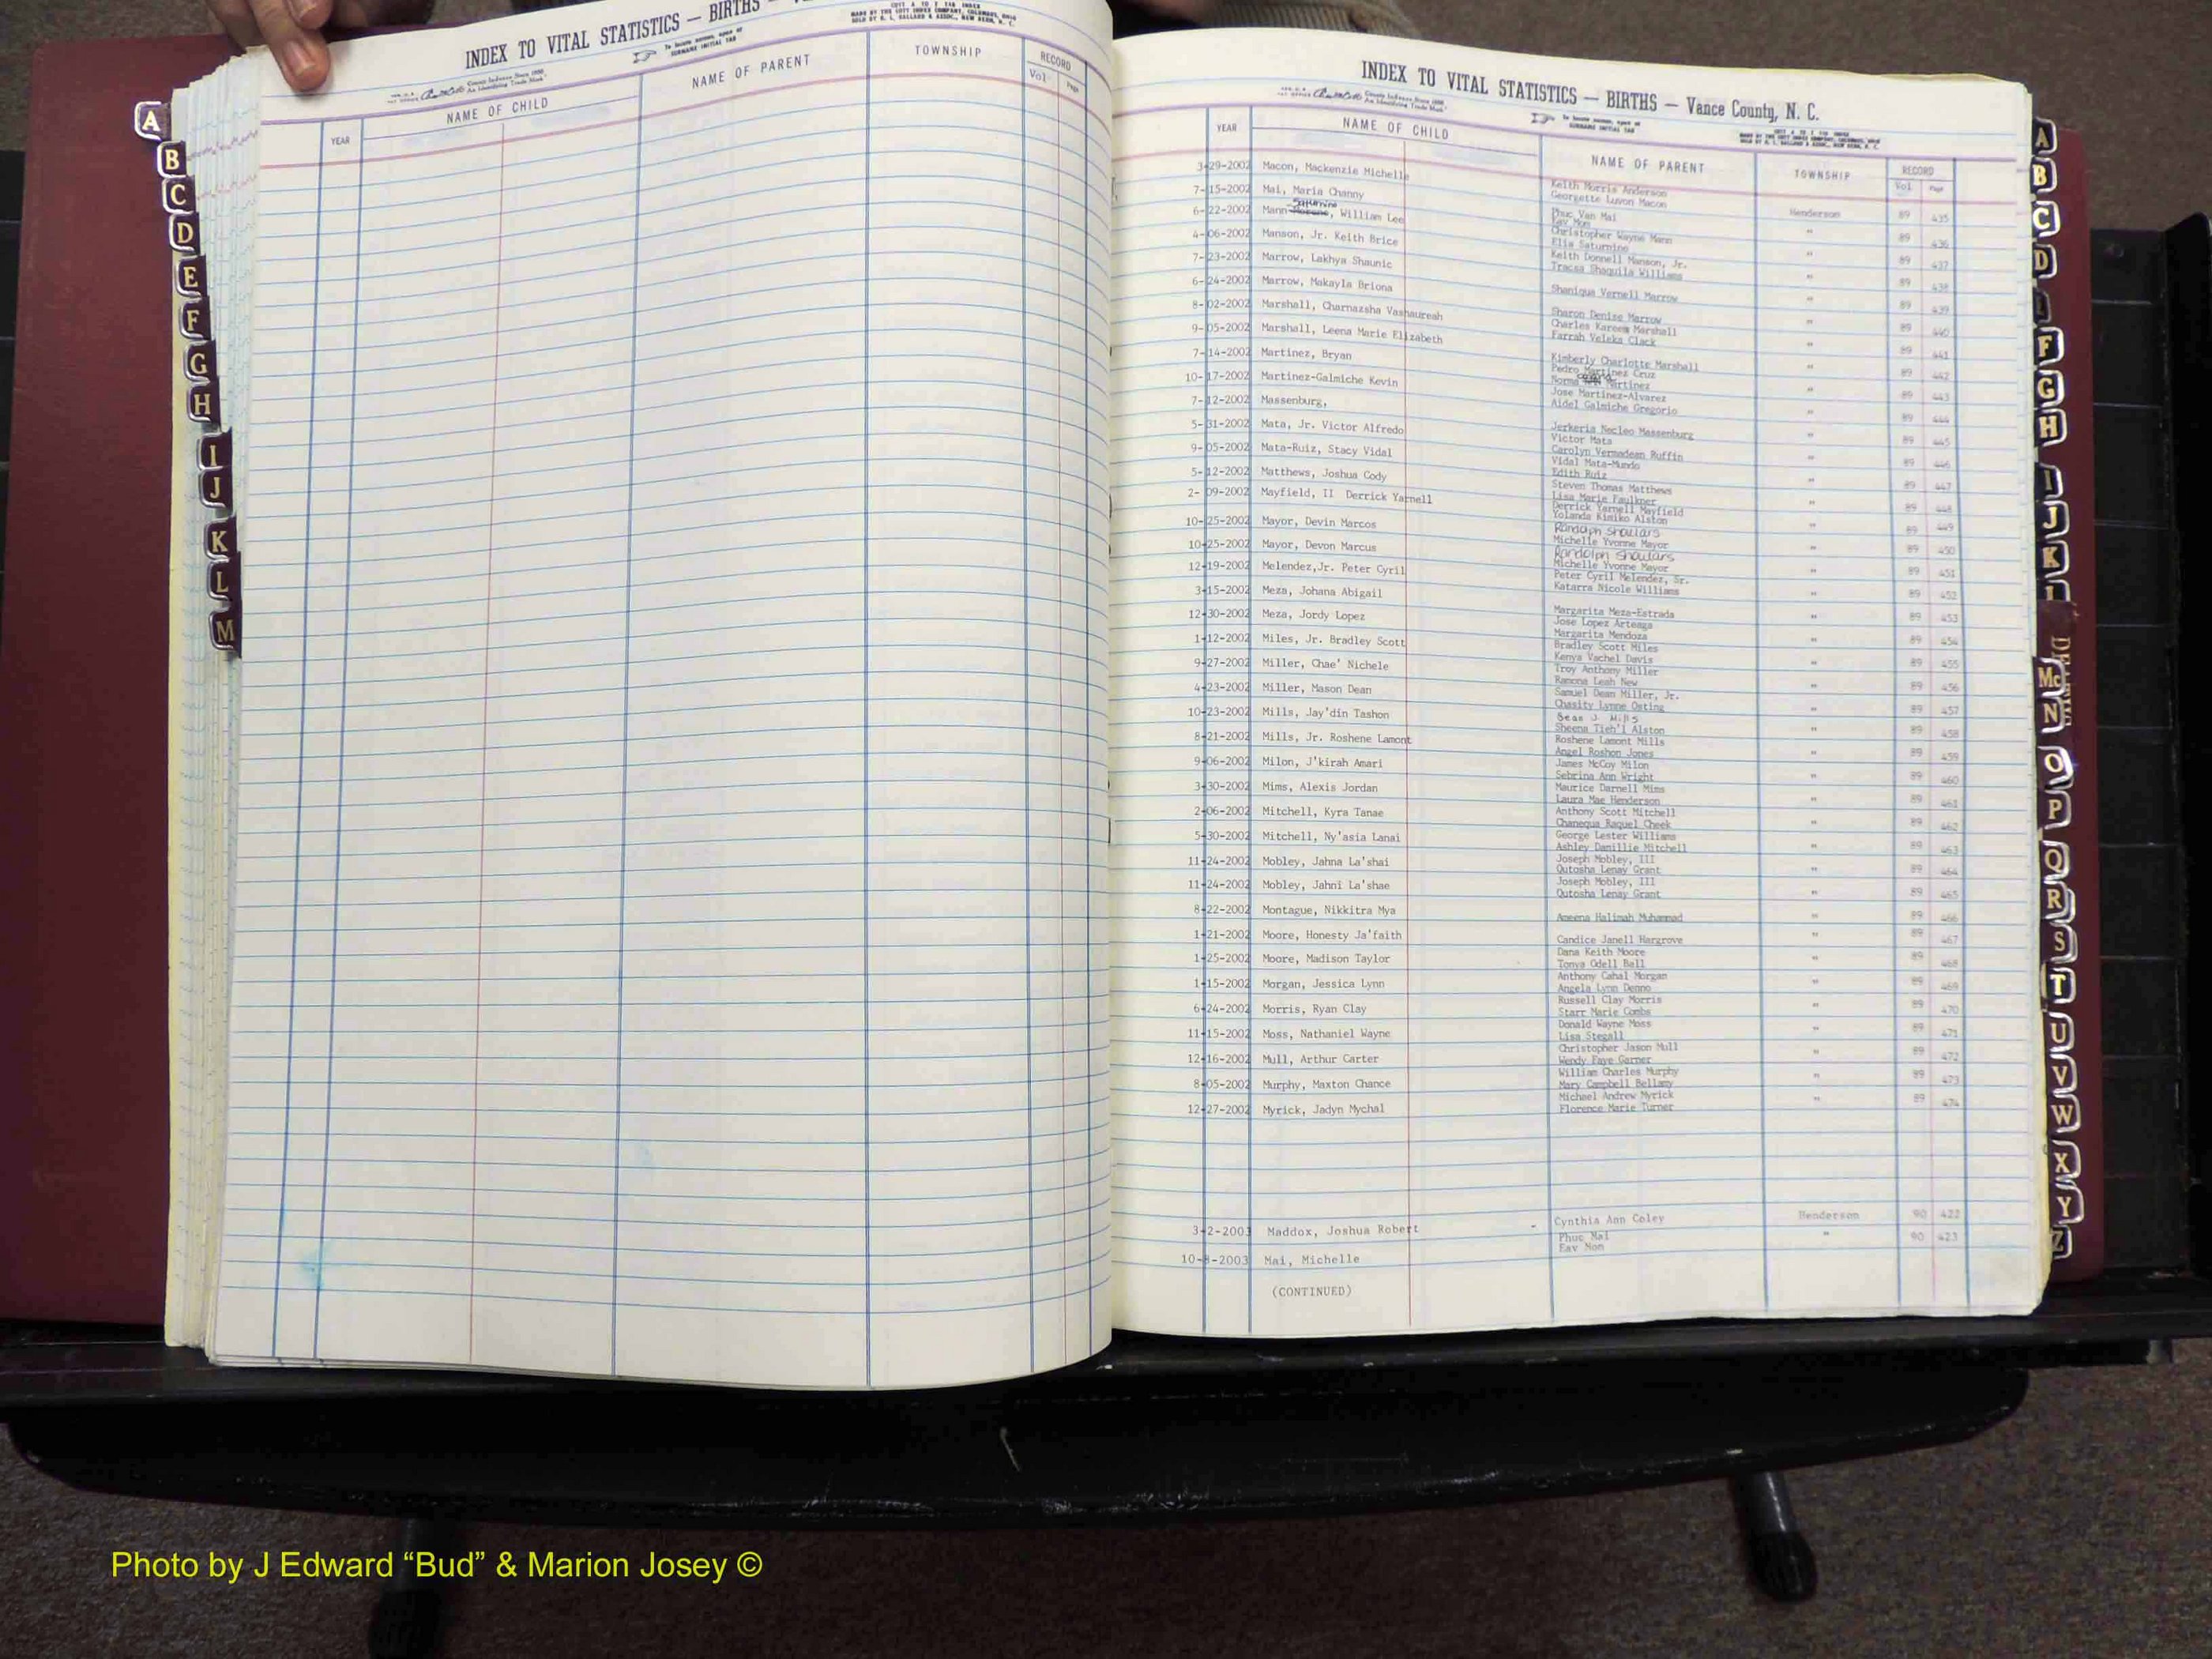 INDEX TO VITAL STATISTICS — BIRTHS —
YEAR
NAME OF CHILD
NAME OF PARENT
TOWNSHIP
RECORD
Vol
Page
A
B
C
D
E
F
G
H
I
J
K
L
M
INDEX TO VITAL STATISTICS — BIRTHS — Vance County, N. C.
YEAR
NAME OF CHILD
NAME OF PARENT
TOWNSHIP
RECORD
Vol
Page
3-29-2002 Macon, Mackenzie Michelle Keith Morris Anderson
Georgette Luvon Macon Henderson 89 435
7-15-2002 Mai, Maria Channy Phuc Van Mai
Eav Non " 89 436
6-22-2002 Mann Saturnino, William Lee Christopher Wayne Mann
Elia Saturnino " 89 437
4-06-2002 Manson, Jr. Keith Brice Keith Donnell Manson, Jr.
Tracsa Shaquila Williams " 89 438
7-23-2002 Marrow, Lakhya Shaunic Shaniqua Vernell Marrow " 89 439
6-24-2002 Marrow, Makayla Briona Sharon Denise Marrow " 89 440
8-02-2002 Marshall, Charnazsha Vashaureah Charles Kareem Marshall
Farrah Veleka Clack " 89 441
9-05-2002 Marshall, Leena Marie Elizabeth Kimberly Charlotte Marshall " 89 442
7-14-2002 Martinez, Bryan Pedro Martinez Cruz
Norma Martinez " 89 443
10-17-2002 Martinez-Galmiche Kevin Jose Martinez-Alvarez
Aidel Galmiche Gregorio " 89 444
7-12-2002 Massenburg, Jerkeria Necleo Massenburg " 89 445
5-31-2002 Mata, Jr. Victor Alfredo Victor Mata
Carolyn Vernadean Ruffin " 89 446
9-05-2002 Mata-Ruiz, Stacy Vidal Vidal Mata-Mundo
Edith Ruiz " 89 447
5-12-2002 Matthews, Joshua Cody Steven Thomas Matthews
Lisa Marie Faulkner " 89 448
2- 09-2002 Mayfield, II Derrick Yarnell Derrick Yarnell Mayfield
Yolanda Kimiko Alston " 89 449
10-25-2002 Mayor, Devin Marcos Randolph Shaulars
Michelle Yvonne Mayor " 89 450
10-25-2002 Mayor, Devon Marcus Randolph Shaulars
Michelle Yvonne Mayor " 89 451
12-19-2002 Melendez,Jr. Peter Cyril Peter Cyril Melendez, Sr.
Katarra Nicole Williams " 89 452
3-15-2002 Meza, Johana Abigail Margarita Meza-Estrada " 89 453
12-30-2002 Meza, Jordy Lopez Jose Lopez Arteaga
Margarita Mendoza " 89 454
1-12-2002 Miles, Jr. Bradley Scott Bradley Scott Miles
Kenya Vachel Davis " 89 455
9-27-2002 Miller, Chae' Nichele Troy Anthony Miller
Ramona Leah New " 89 456
4-23-2002 Miller, Mason Dean Samuel Dean Miller, Jr.
Chasity Lynne Osting " 89 457
10-23-2002 Mills, Jay'din Tashon Sean J. Mills
Sheena Tieh'l Alston " 89 458
8-21-2002 Mills, Jr. Roshene Lamont Roshene Lamont Mills
Angel Roshon Jones " 89 459
9-06-2002 Milon, J'kirah Amari James McCoy Milon
Sebrina Ann Wright " 89 460
3-30-2002 Mims, Alexis Jordan Maurice Darnell Mims
Laura Mae Henderson " 89 461
2-06-2002 Mitchell, Kyra Tanae Anthony Scott Mitchell
Chanequa Raquel Cheek " 89 462
5-30-2002 Mitchell, Ny'asia Lanai George Lester Williams
Ashley Danillie Mitchell " 89 463
11-24-2002 Mobley, Jahna La'shai Joseph Mobley, III
Qutosha Lenay Grant " 89 464
11-24-2002 Mobley, Jahni La'shae Joseph Mobley, III
Qutosha Lenay Grant " 89 465
8-22-2002 Montague, Nikkitra Mya Ameena Halimah Muhammad " 89 466
1-21-2002 Moore, Honesty Ja'faith Candice Janell Hargrove " 89 467
1-25-2002 Moore, Madison Taylor Dana Keith Moore
Tonya Odell Bell " 89 468
1-15-2002 Morgan, Jessica Lynn Anthony Cahal Morgan
Angela Lynn Denno " 89 469
6-24-2002 Morris, Ryan Clay Russell Clay Morris
Starr Marie Combs " 89 470
11-15-2002 Moss, Nathaniel Wayne Donald Wayne Moss
Lisa Stegall " 89 471
12-16-2002 Mull, Arthur Carter Christopher Jason Mull
Wendy Faye Garner " 89 472
8-05-2002 Murphy, Maxton Chance William Charles Murphy
Mary Campbell Bellamy " 89 473
12-27-2002 Myrick, Jadyn Mychal Michael Andrew Myrick
Florence Marie Turner " 89 474
3-2-2003 Maddox, Joshua Robert - Cynthia Ann Coley Henderson 90 422
10-8-2003 Mai, Michelle Phuc Mai
Eav Non " 90 423
(CONTINUED)
A
B
C
D
F
G
H
I
J
K
L
Mc
N
O
P
Q
R
S
T
U
V
W
X
Y
Z
Photo by J Edward “Bud” & Marion Josey ©